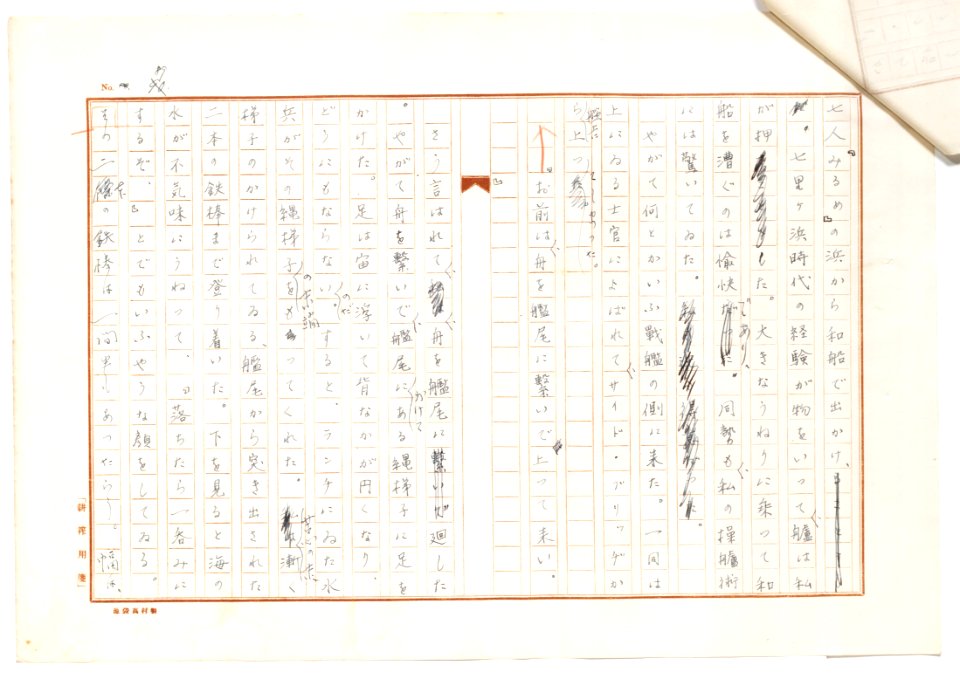 七人みるめの浜から和船で出かけ、
。七里ヶ浜時代の経験が物をいって艫は私
が押した。大きなうねりに乗って和
船を漕ぐのは愉快であり、。同勢も私の操艫術
には驚いてゐた。
やがて何とかいふ戰艦の側に来た。一同は
上にゐる士官によばれてサイド・ブリッヂか
ら艦上に上つ
『お前は舟を艦尾に繋いで上って来い。
』
さう言はれて舟を艦尾に廻した
。やがて舟を繋いで艦尾にある縄梯子に足を
かけた。足は宙に浮いて背なかが円くなり
どうにもならないのだ。すると、ランチにゐた水
兵がその縄梯子の末端をもってくれた。漸く
梯子のかけられてゐる、艦尾から突き出された
二本の鉄棒まで登り着いた。下を見ると海の
水が不気味にうねって、『落ちたら一呑みに
するぞ。』とでもいふやうな顔をしてゐる。
その二本の鉄棒は、一間半もあったらう。幅は、
No.
「耕莚用箋」